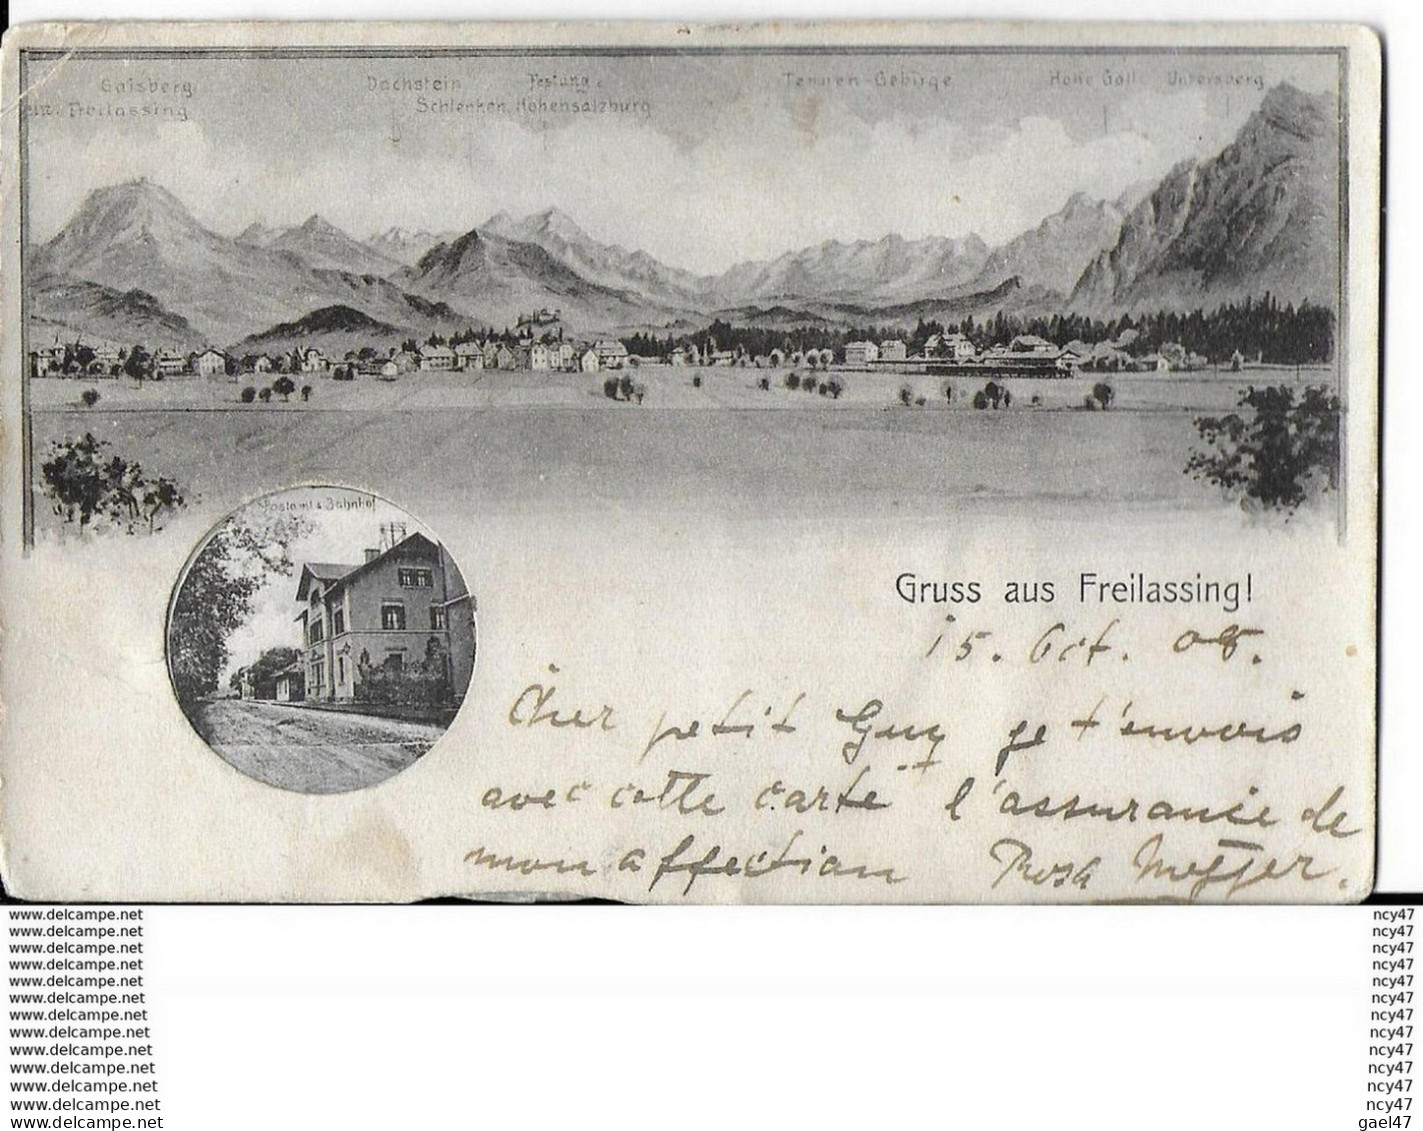 Gaisberg
Freilassing
Dachstein
Festung
Schlenken. Hohensalzburg
Tennen-Gebirge
Hohe Göll
Untersberg
Postamt & Bahnhof
Gruss aus Freilassing!
15. Oct. 08.
Cher petit Guy je t'envois
avec cette carte l'assurance de
mon affection Rosa Metzger.
www.delcampe.net
www.delcampe.net
www.delcampe.net
www.delcampe.net
www.delcampe.net
www.delcampe.net
www.delcampe.net
www.delcampe.net
www.delcampe.net
www.delcampe.net
www.delcampe.net
www.delcampe.net
www.delcampe.net
ncy47
ncy47
ncy47
ncy47
ncy47
ncy47
ncy47
ncy47
ncy47
ncy47
ncy47
ncy47
gael47